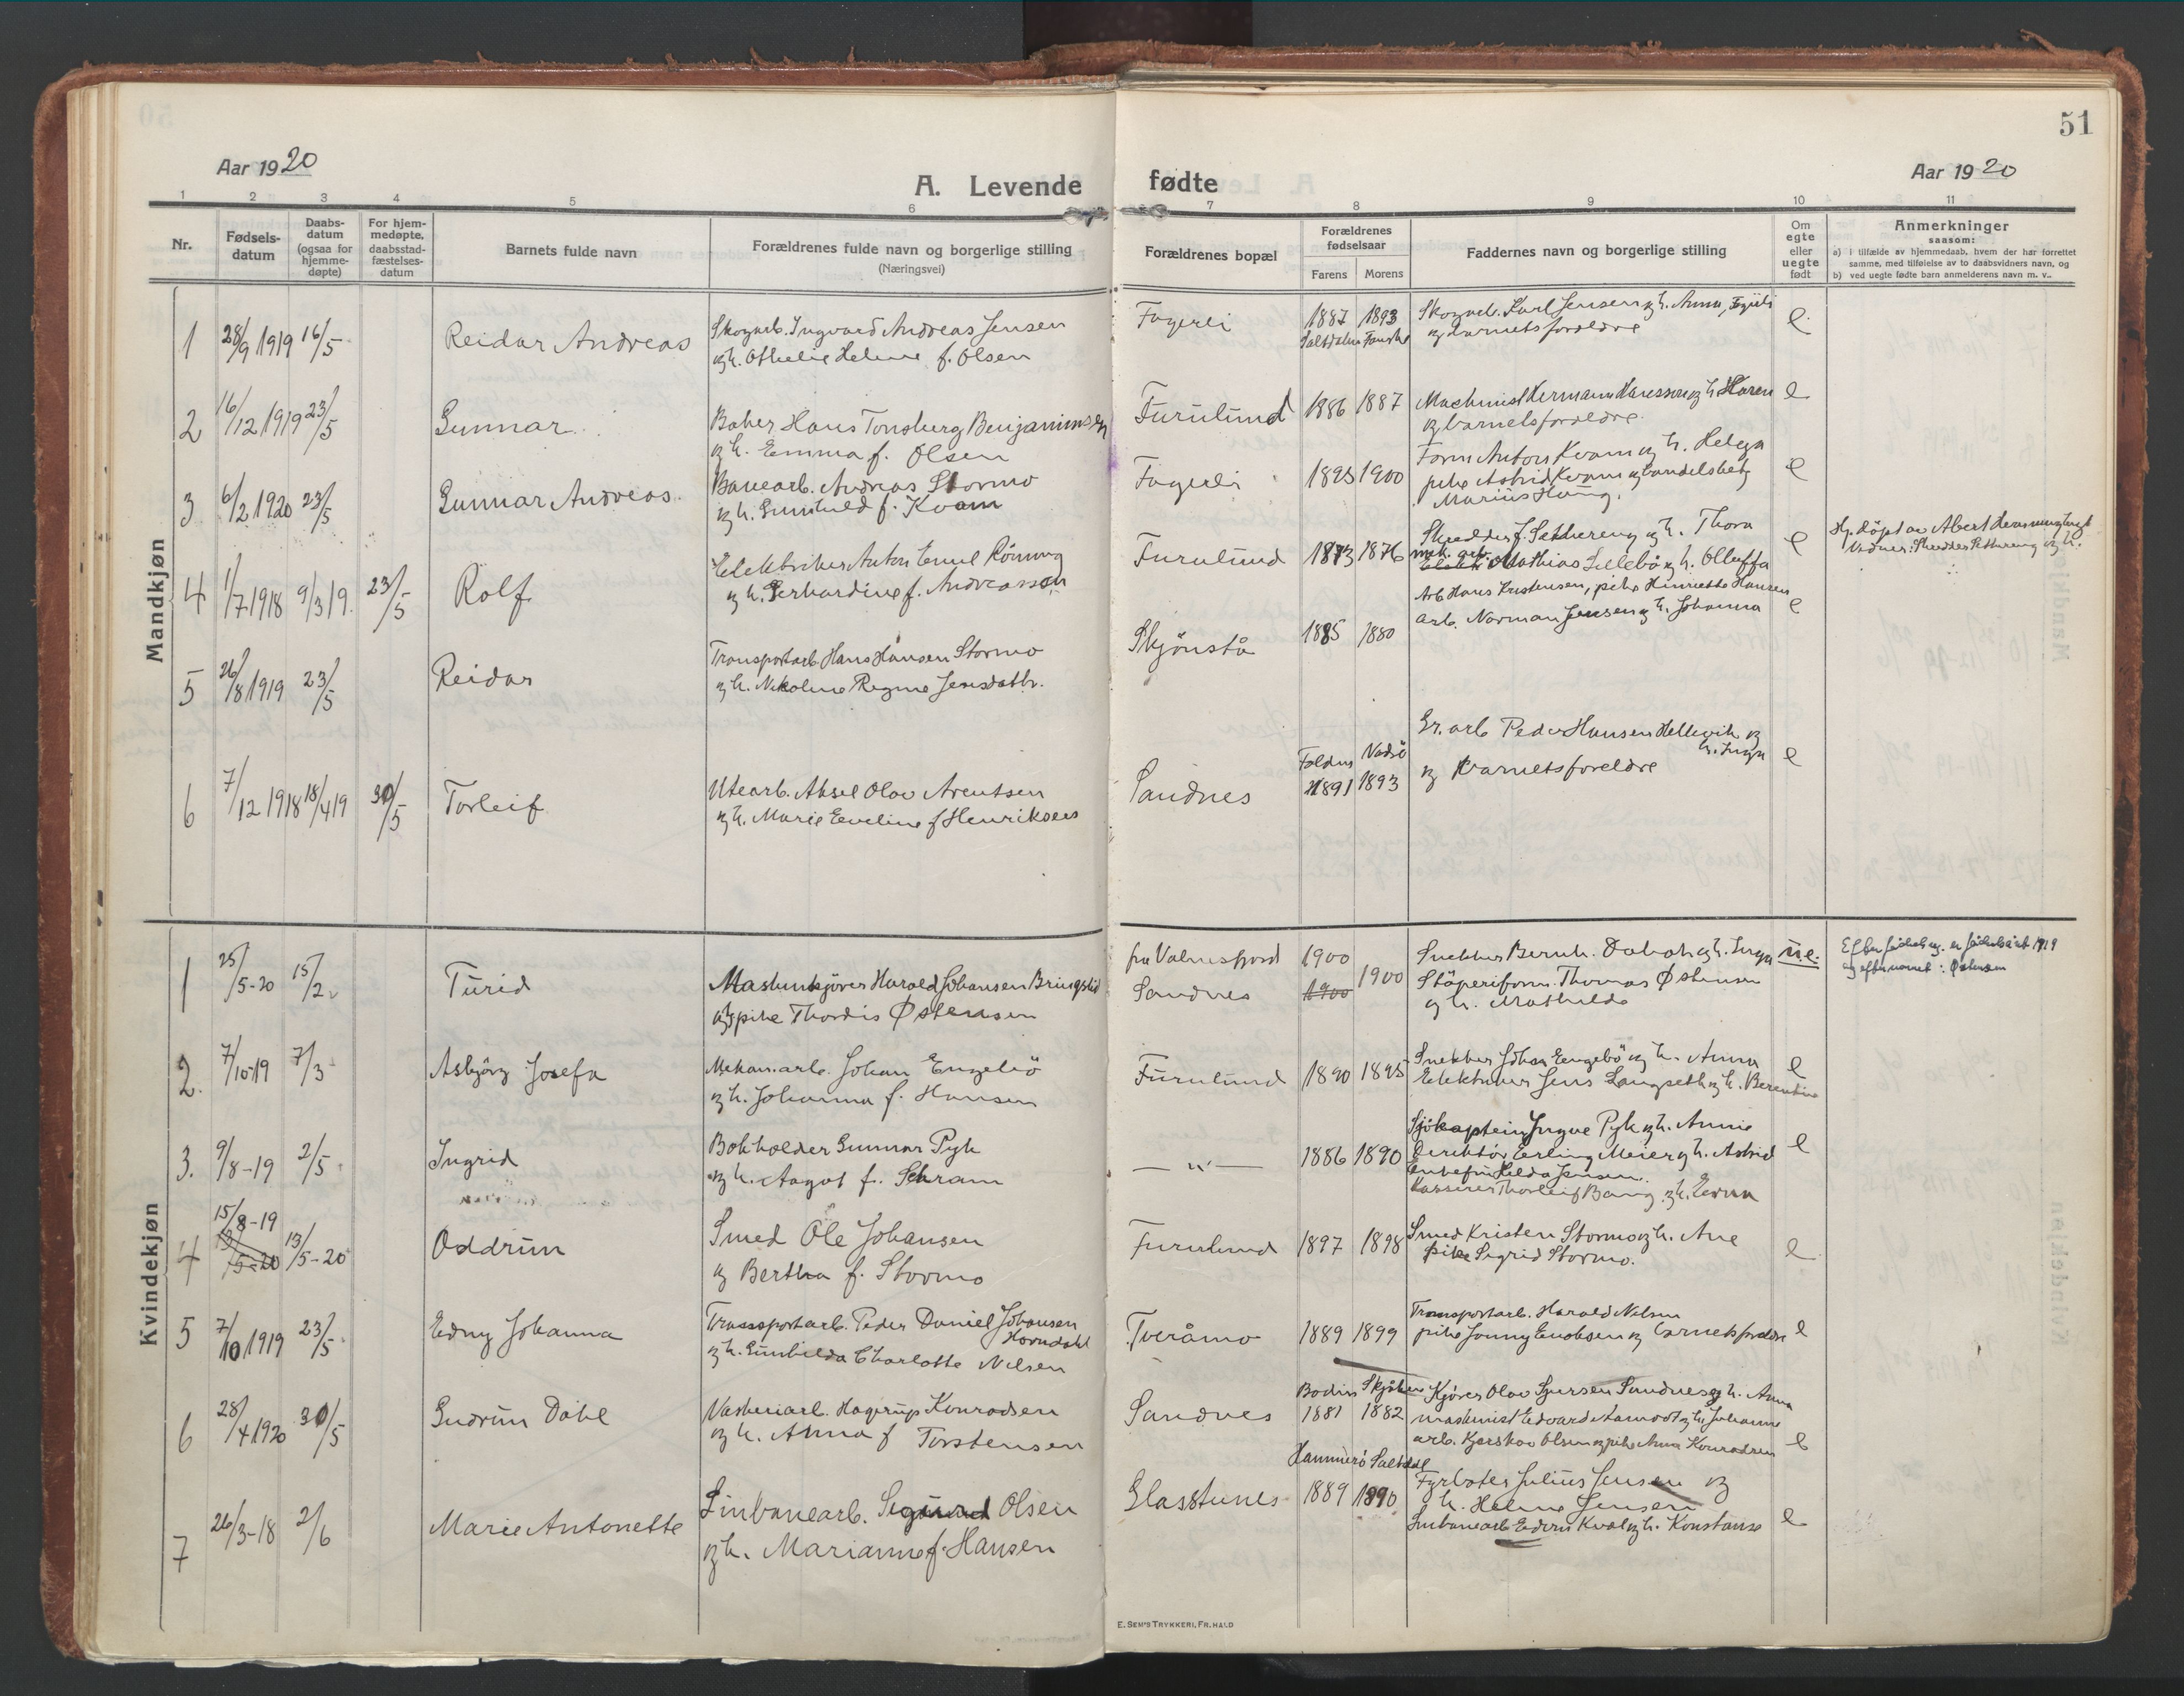 51
Aar 1920
A. Levende fødte
Aar 1920
1 2 3 4 5 6 7 8 9 10 11
Nr.
Fødsels-
datum
Daabs-
datum
(ogsaa for
hjemme-
døpte)
For hjem-
medøpte,
daabsstad-
fæstelses-
datum
Barnets fulde navn
Forældrenes fulde navn og borgerlige stilling
(Næringsvei)
Forældrenes bopæl
Forældrenes
fødselsaar
Farens Morens
Faddernes navn og borgerlige stilling
Om
egte
eller
uegte
født
Anmerkninger
saasom:
a) i tilfælde av hjemmedaab, hvem der har forrettet
samme, med tilføielse av to daabsvidners navn, og
b) ved uegte fødte barn anmelderens navn m. v..
Mandkjøn
1 28/9 1919 16/5 Reidar Andreas
Skogarb. Ingvard Andreas Jensen
og h. Othelie Helene f. Olsen
Fagerli 1887 1893
Saltdalen Fauske
Skogarb. Karl Jensen og h. Anna, Fagerli
og barnets foreldre
e
2 16/12 1919 23/5 Gunnar
Baker Hans Tonsberg Benjaminsen
og h. Emma f. Olsen
Furulund 1886 1887
Machinist Hermann Hanssen og h. Haren
og barnets foreldre.
e
3 6/2 1920 23/5 Gunnar Andreas.
Banearb. Andreas Stormo
og h. Gunhild f. Kvam
Fagerli 1895 1900
Form Anton Kvam og h. Helga
pike Astrid Kvam og handelsbet
Marius Haug.
e
4 1/7 1918 9/3 19. 23/5 Rolf
Elektriker Anton Emil Rönning
og h. Gerhardine f. Andreassen
Furulund 1873 1876
Skredder J. Sætereng og h. Thora
mek. arb. Mathias Lillebö og h. Olluffa
e
Hj. döpt av Albert Henning
Vidner: Skredder Sætereng og h.
5 26/8 1919 23/5 Reidar
Transportarb Hans Hansen Stormo
og h. Nikoline Regine Jensdatter.
Skjönstå 1885 1880
Arb Hans Kristensen, pike Hinriette Hansen
arb. Norman Jensen og h. Johanna
e
6 7/12 1918 18/4 19 30/5 Torleif
Utearb. Aksel Olav Arentsen
og h. Marie Eveline f Henriksen
Sandnes
Folden Vadsö
1891 1893
Gr. arb Peder Hansen Hellevik og
h. Inga
og barnets foreldre
e
Kvindekjøn
1 25/5-20 15/2 Turid
Maskinkjörer Harold Johansen Bringslid
og pike Thordis Østensen
fra Valnesfjord 1900
Sandnes 1900 1900
Snekker Bernh. Dabakk og h. Inga
Stöperiform. Thomas Østensen
og h. Mathilda
u.e.
Efter födselsreg. er födselsåret 1919
og efternavnet: Østensen
2. 7/10-19 7/3 Asbjörg Josefa
Mekan.arb. Johan Engebö
og h. Johanna f. Hansen
Furulund 1890 1895
Snekker Johan Engebö og h. Anna
Elektriker Jens Langseth og h. Berentine
e
3. 9/8-19 2/5 Ingrid
Bokholder Gunnar Pyk
og h. Aagot f. Schram
— " — 1886 1890
Sjökaptein Yngve Pyk og h. Annie
Direktör Erling Meier og h. Astrid
Enkefru Helda Jensen.
Kasserer Thorleif Bang og h. Edna
e
4 15/8-19 13/5-20 13/5-20 Oddrun
Smed Ole Johansen
og Bertha f. Stormo
Furulund 1897 1898
Smed Kristen Stormo og h. Ane
pike Sigrid Stormo.
e
5 7/10 1919 23/5 Edny Johanna
Transportarb. Peder Daniel Johansen
Horndahl
og h. Gunhilda Charlotte Nilsen
Tveråmo 1889 1899
Transportarb. Harald Nilsen
pike Jonny Enoksen og barnets foreldre
e
6 28/4 1920 30/5 Gudrun Dahl
Vaskeriarb. Hagerup Konradsen
og h. Anna f Torstensen
Sandnes
Bodin Skjerstad
1881 1882
Kjörer Olav Sjursen Sandnes og h. Anna
maskinist Edvard Aamodt og h. Johanne
arb. Kjerskov Olsen og pike Anna Konradsen
e
7 26/3-18 2/6 Marie Antonette
Linbanearb. Sigurd Olsen
og h. Marianne f. Hansen
Glasstunes
Hammerö Saltdal
1889 1890
Fyrböter Julius Jensen og
h. Helene Jensen
Linbanearb Edvin Kval og h. Konstanse
e
E. SEM'S TRYKKERI, FR.HALD